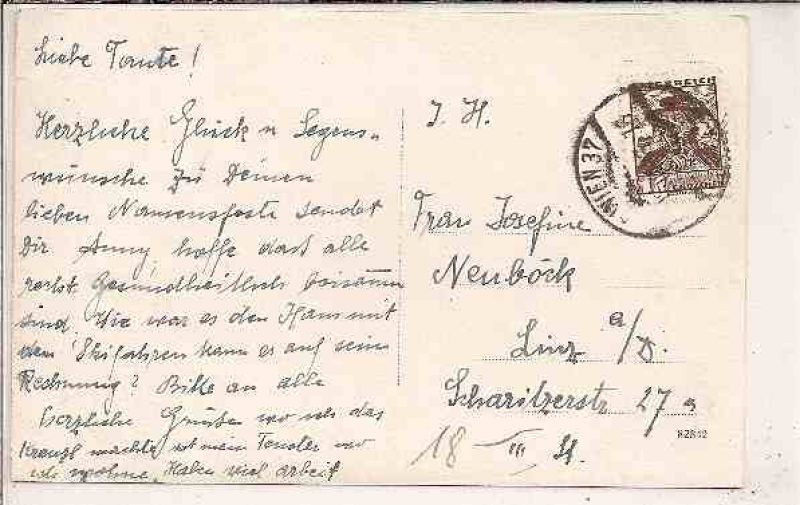 Liebe Tante!
Herzliche Glück u Segens-
wünsche zu Deinen
lieben Namensfeste sendet
Dir Anny hoffe dast alle
recht Gesundheitlich beisamen
sind. Wie war es den Hans mit
dem Skifahren kam er auf seine
Rechnung? Bitte an alle
herzliche Grüße wo ich das
Kranzl machte ist mein Fenster wo
ich wohne. Haben viel arbeit
I. H.
Frau Josefine
Neuböck
Linz a/D.
Scharitzerstr 27 a
18 III
82812
ÖSTERREICH
WIEN 37